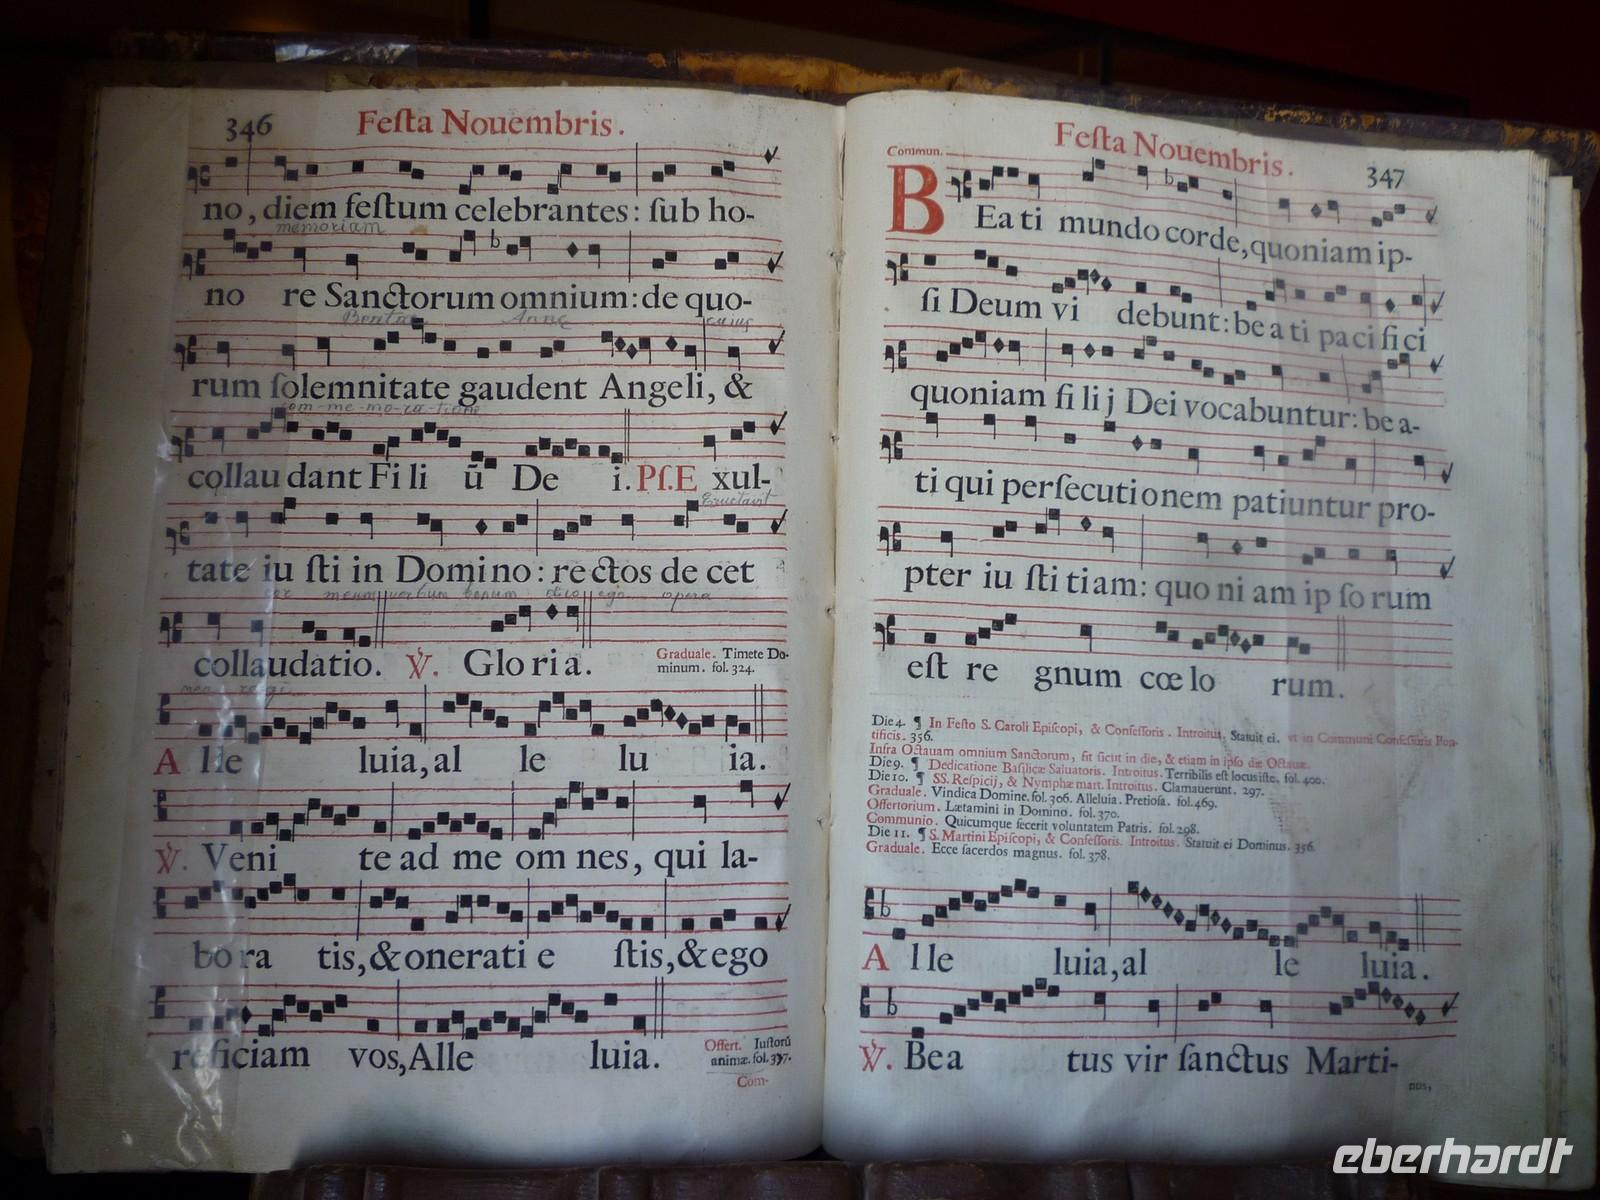 346
Feſta Nouembris.
no, diem feſtum celebrantes: ſub ho-
memoriam
no re Sanctorum omnium: de quo-
Beatae Anne cuius
rum ſolemnitate gaudent Angeli, &
com-me-mo-ra-tione
collau dant Fi li ū De i. Pſ. E xul-
Eructavit
tate iu ſti in Domino: rectos de cet
cor meum verbum bonum dico ego opera
collaudatio. ℣. Gloria.
Graduale. Timete Do-
minum. fol. 324.
mea regi
A lle luia, al le lu ia.
℣. Veni te ad me om nes, qui la-
bo ra tis, & onerati e ſtis, & ego
reficiam vos, Alle luia.
Offert. Iuſtorū
animæ. fol. 337.
Com-
Feſta Nouembris.
347
Commun.
BEati mundo corde, quoniam ip-
ſi Deum vi debunt: be a ti pa ci fi ci
quoniam fi li j Dei vocabuntur: be a-
ti qui perſecutionem patiuntur pro-
pter iu ſti tiam: quo ni am ip ſo rum
eſt re gnum cœ lo rum.
Die 4. ¶ In Feſto S. Caroli Epiſcopi, & Confeſſoris. Introitus, Statuit ei. vt in Communi Confeſſoris Pon-
tificis. 356.
Infra Octauam omnium Sanctorum, fit ſicut in die, & etiam in ipſo die Octauæ.
Die 9. ¶ Dedicatione Baſilicæ Saluatoris. Introitus. Terribilis eſt locus iſte. fol. 400.
Die 10. ¶ SS. Reſpicij, & Nymphæ mart. Introitus. Clamauerunt. 297.
Graduale. Vindica Domine. fol. 306. Alleluia. Pretioſa. fol. 469.
Offertorium. Lætamini in Domino. fol. 370.
Communio. Quicumque fecerit voluntatem Patris. fol. 298.
Die 11. ¶ S. Martini Epiſcopi, & Confeſſoris. Introitus. Statuit ei Dominus. 356.
Graduale. Ecce ſacerdos magnus. fol. 378.
A lle luia, al le luia.
℣. Bea tus vir ſanctus Marti-
nus,
eberhardt